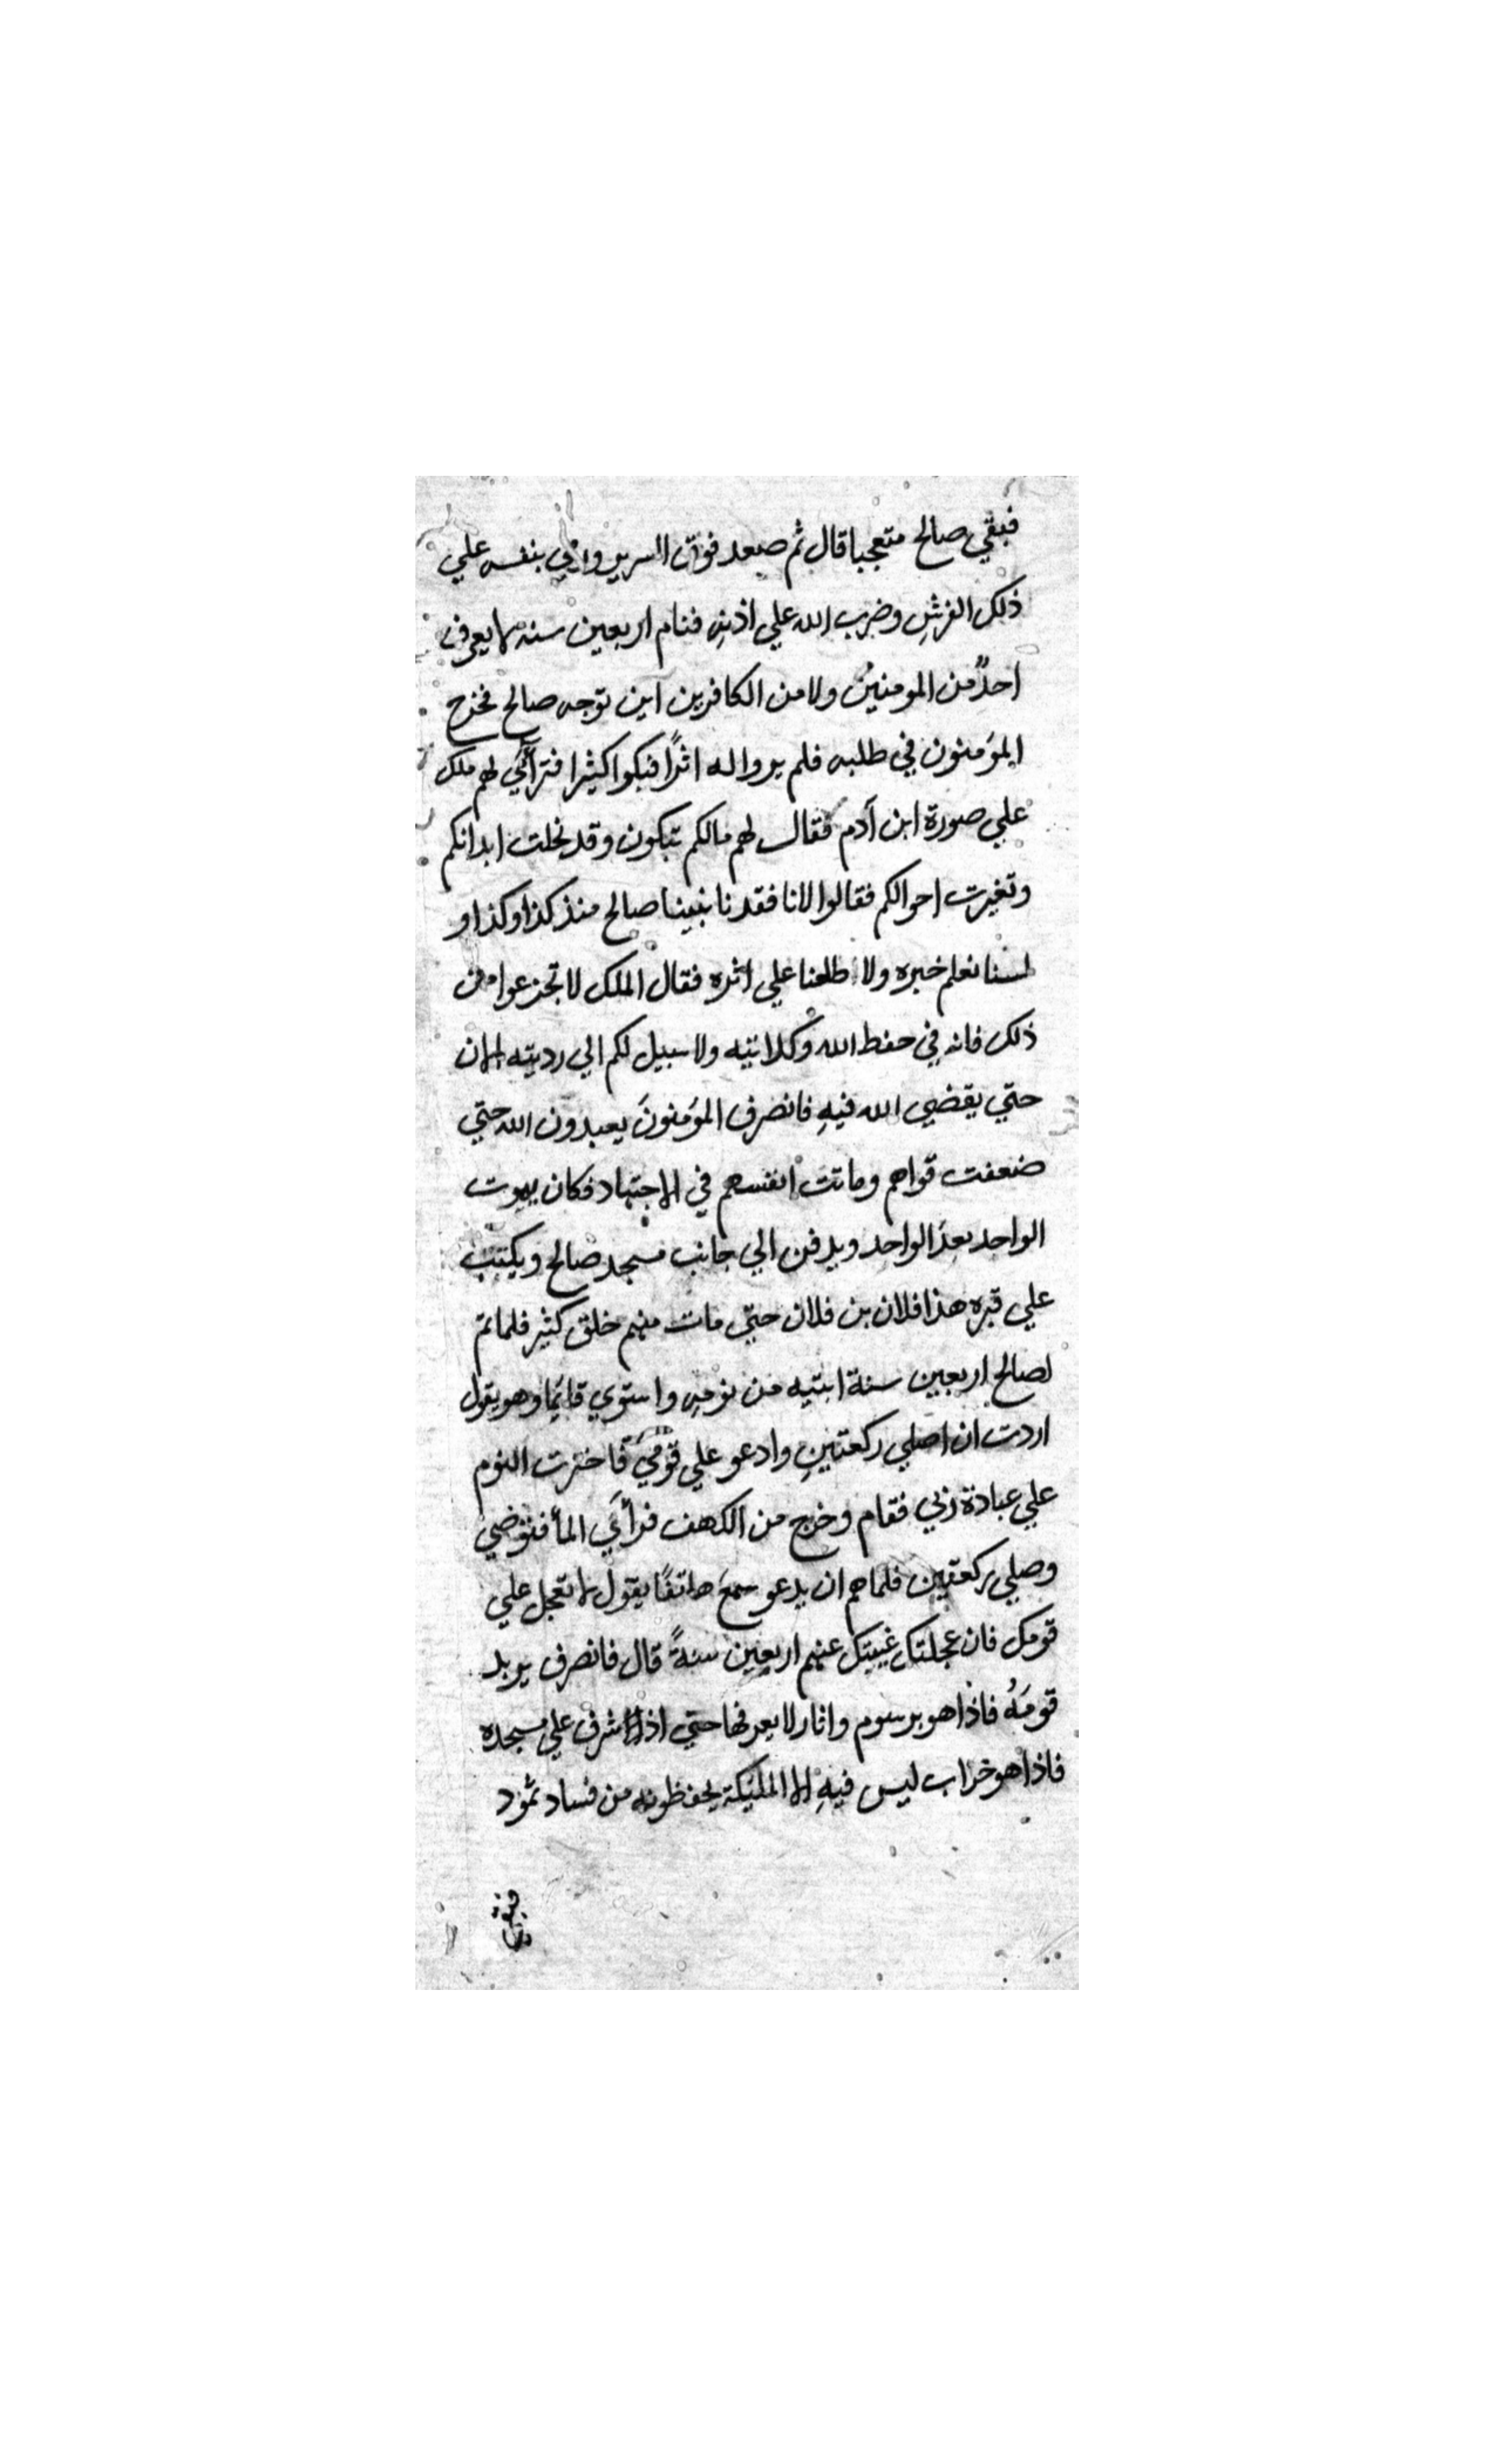 فبقي صالح متعجبا قال ثم صعد فوق السرير والقي بنفسه علي
ذلك الفرش وضرب الله علي اذنه فنام اربعين سنه لا يعرف
احدٌ من المومنين ولا من الكافرين اين توجه صالح فخرج
المؤمنون في طلبه فلم يروا له اثرًا فبكوا كثيرا فترأي لهم ملك
علي صورة ابن آدم فقال لهم مالكم تبكون وقد نحلت ابدانكم
وتغيرت احوالكم فقالوا لانا فقدنا نبينا صالح منذ كذا وكذا و
لسنا نعلم خبره ولا اطلعنا علي اثره فقال الملك لا تجزعوا من
ذلك فانه في حفظ الله وكلائيه ولا سبيل لكم الي رديته الان
حتي يقضي الله فيهِ فانصرف المؤمنونَ يعبدون الله حتي
ضعفت قواهم وماتت انفسهم في الاجتهاد فكان يموت
الواحد بعدَ الواحد ويدفن الي جانب مسجد صالح ويكتب
علي قبره هذا فلان بن فلان حتي مات منهم خلق كثير فلما تم
لصالح اربعين سنة ابتيه من نومهِ واستوي قائما وهو يقول
اردت ان اصلي ركعتينِ وادعو علي قومي فاخترت النوم
علي عبادة ربي فقام وخرج من الكهف فرأي المأ فتوضي
وصلي ركعتين فلما هم ان يدعو سمع هاتفًا يقول لا تعجل علي
قومك فان عجلتك غيبتك عنهم اربعين سنةً قال فانصرف يريد
قومَهُ فاذا هو برسوم واثار لا يعرفها حتي اذا اشرف علي مسجده
فاذا هو خراب ليس فيهِ الا المليكة يحفظونه من فساد ثمود